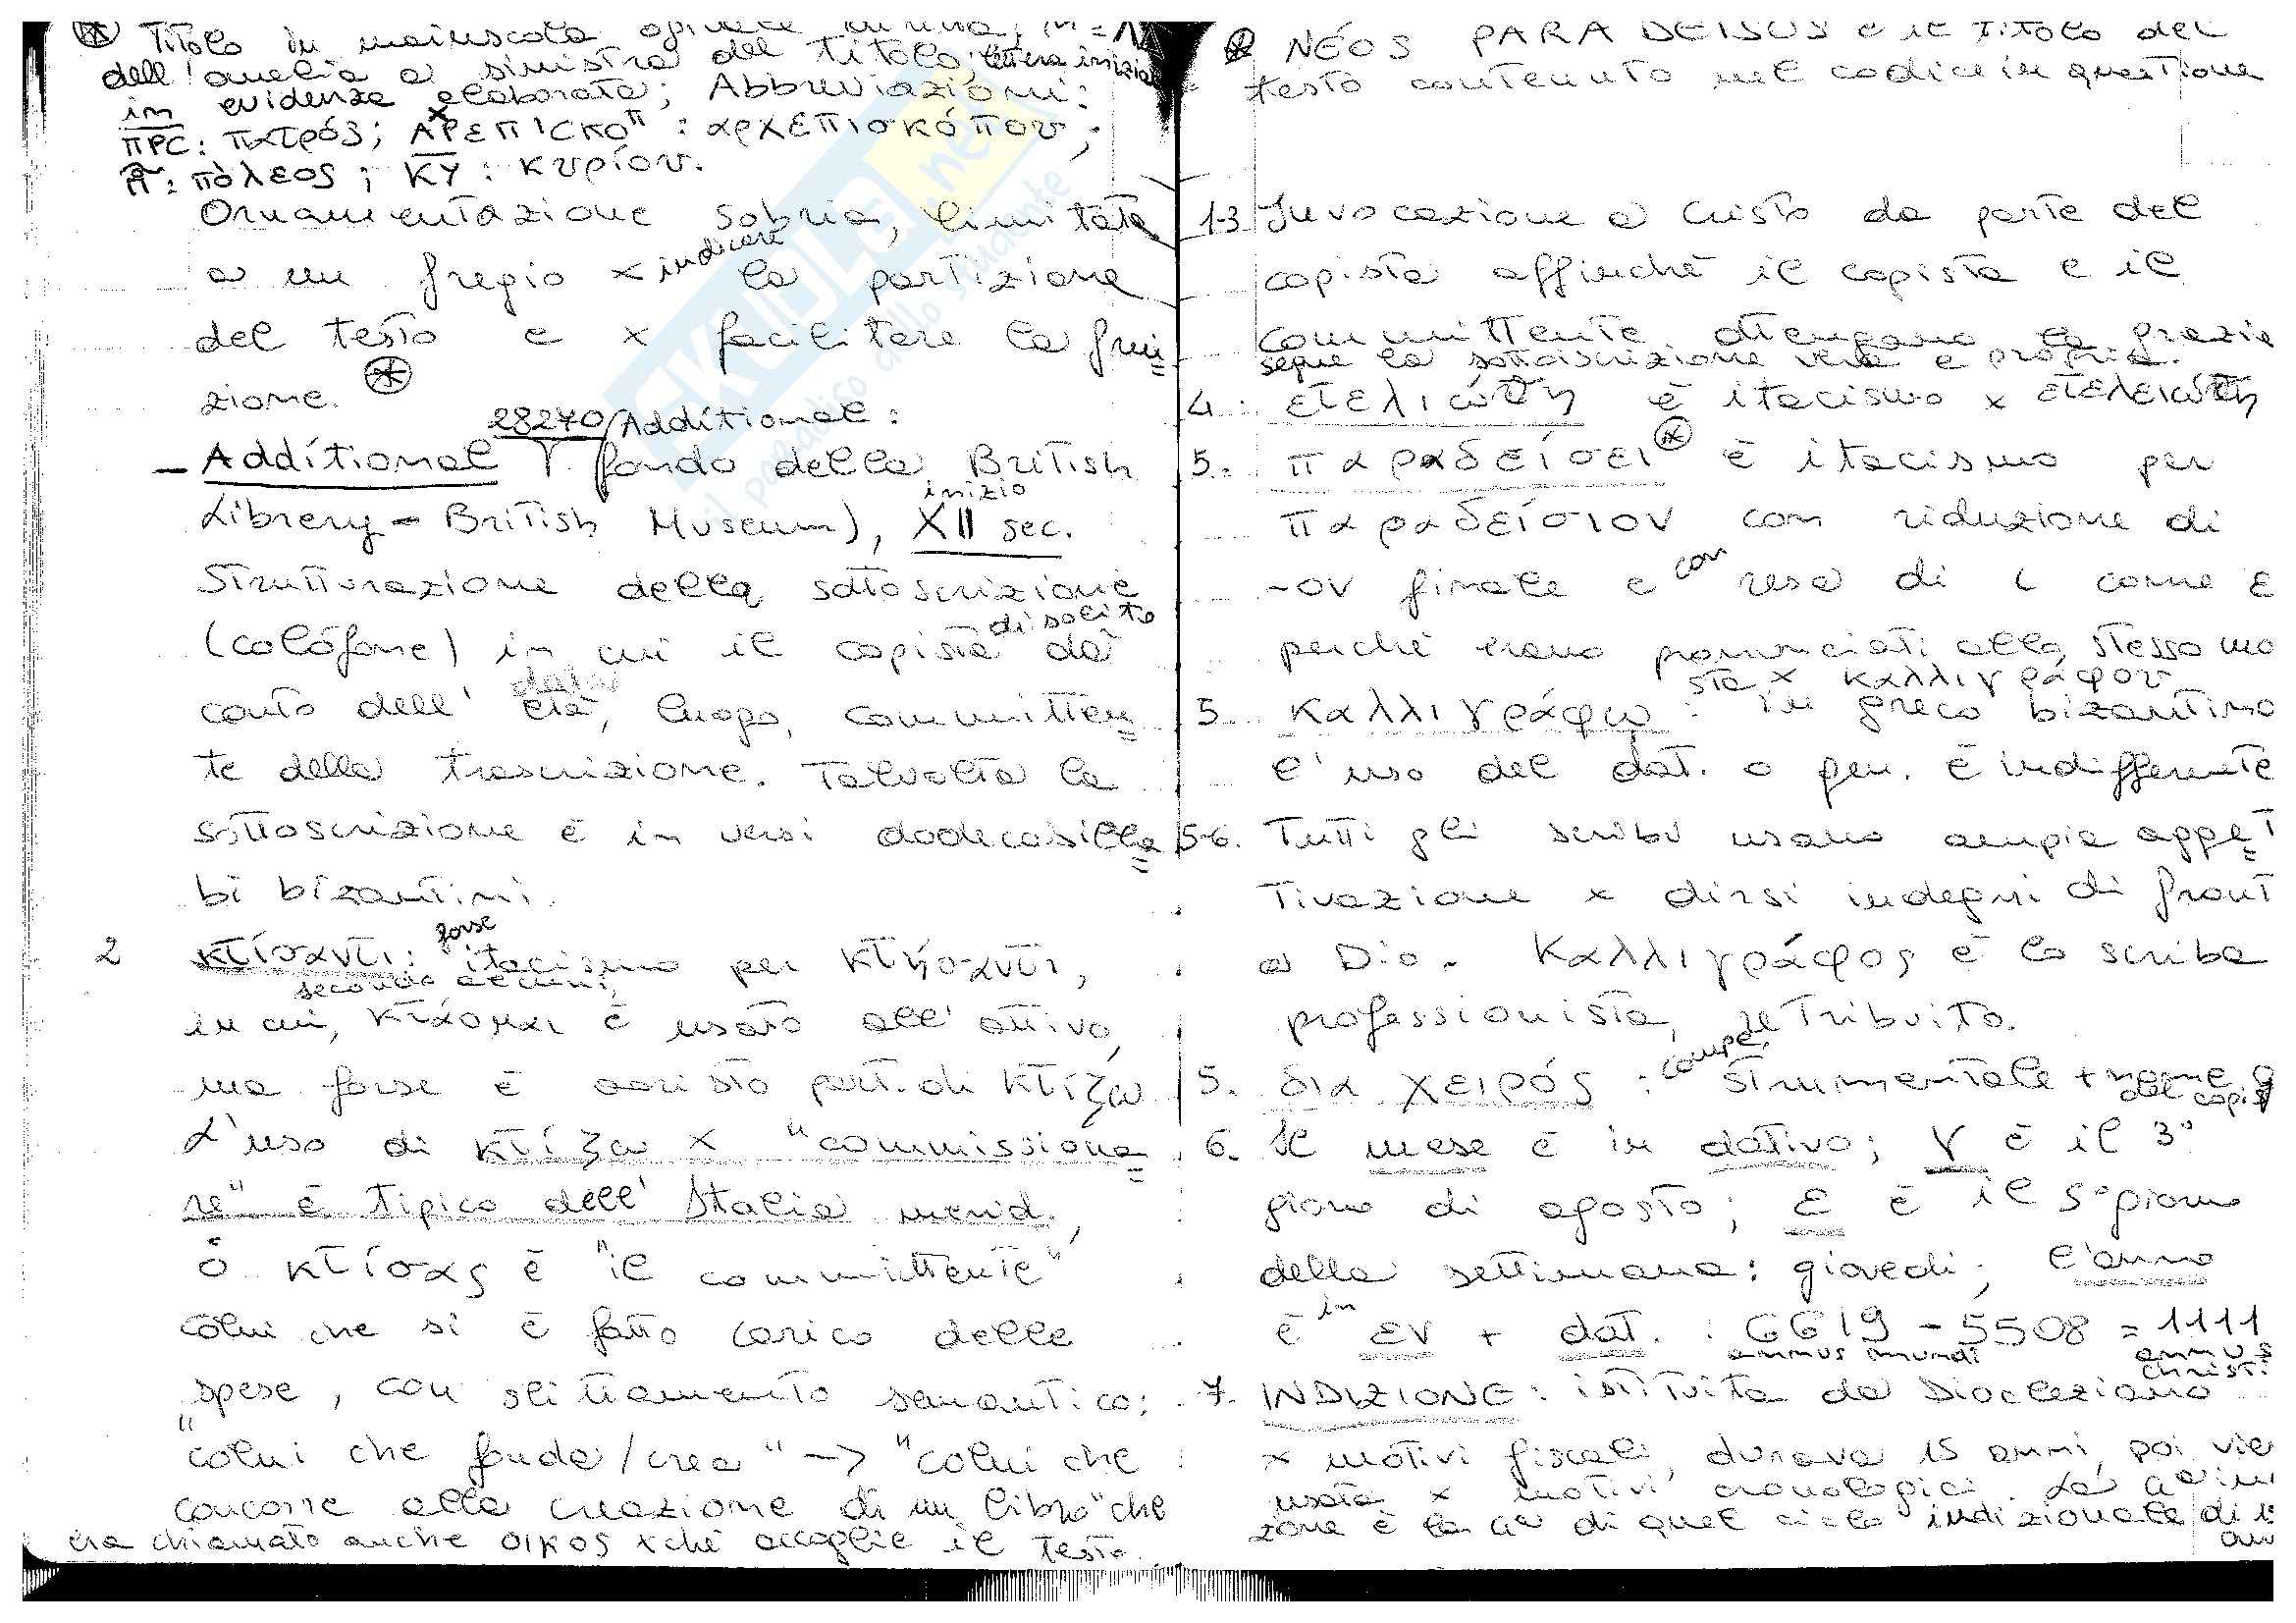 Titolo in maiuscola
dell'ancìa a sinistra del titolo; lettera inizia
in evidenza elaborata; Abbreviazioni:
ΠΡC: πατρός; ΑΡΕΠΙCΚΟΠ: αρχεπισκόπου;
Π: πόλεος; ΚΥ: κυρίου.
Ornamentazione sobria, limitata
a un fregio x indicare la partizione
del testo e x facilitare la frui=
zione.
28270 Additional:
- Additional fondo della British
Library - British Museum), inizio XII sec.
Strutturazione della sottoscrizione
(colófone) in cui il copista di solito dà
conto dell' data età, luogo, committen=
te della trascrizione. Talvolta la
sottoscrizione è in versi dodecasilla=
bi bizantini.
2 κτίσαντι: forse itacismo per κτήσαντι,
secondo alcuni,
in cui, κτάομαι è usato all'attivo,
ma forse è aoristo part. di κτίζω
L'uso di κτίζω x "commissiona=
re" è tipico dell'Italia merid.,
ὁ κτίσας è "il committente"
colui che si è fatto carico delle
spese, con slittamento semantico:
"colui che fonda/crea" -> "colui che
concorre alla creazione di un libro" che
era chiamato anche οικος xchè accoglie il testo.
NÉOS PARADEISOS è il titolo del
testo contenuto nel codice in questione
1-3 Invocazione a Cristo da parte del
copista affinchè il copista e il
committente ottengano la grazia
segue la sottoscrizione vera e propria.
4. ετελιώθη è itacismo x ετελειώθη
5. παραδείσει è itacismo per
παραδείσιον con riduzione di
-ον finale e con resa di ι come ε
perché erano pronunciati allo stesso mo
5. καλλιγράφω: sta x καλλιγράφου in greco bizantino
l'uso del dat. o gen. è indifferente
5-6. Tutti gli scribi usano ampia agget=
tivazione x dirsi indegni di front
a Dio. Καλλιγράφος è lo scriba
professionista, retribuito.
5. δια χειρός: compl. strumentale + nome
del copis
6. Il mese è in dativo; γ è il 3°
giorno di agosto; ε è il 5° giorno
della settimana: giovedì; l'anno
è in εν + dat.: 6619 - 5508 = 1111
annus mundi annus
christi
7. INDIZIONE: istituita da Diocleziano
x motivi fiscali, durava 15 anni, poi vie
usata x motivi cronologici. La
zione è la di quel ciclo indizionale di